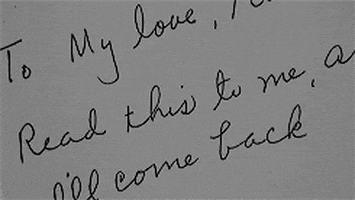 To My love,
Read this to me, a
I'll come back